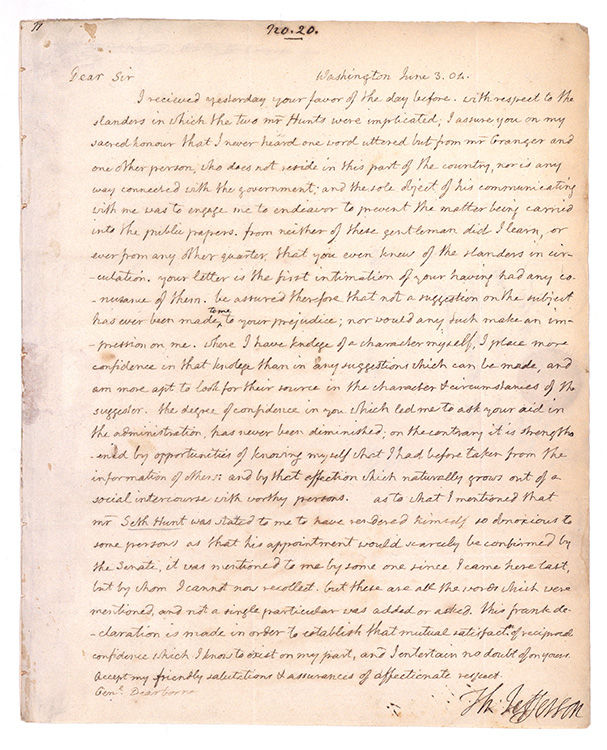 71
No. 20.
Dear Sir Washington June 3. 04.
I recieved yesterday your favor of the day before. with respect to the
slanders in which the two mr Hunts were implicated, I assure you on my
sacred honour that I never heard one word uttered but from mr Granger and
one other person, who does not reside in this part of the country, nor is any
way connected with the government; and the sole object of his communicating
with me was to engage me to endeavor to prevent the matter being carried
into the public papers. from neither of these gentleman did I learn, or
ever from any other quarter, that you even knew of the slanders in cir-
-culation. your letter is the first intimation of your having had any co-
-nusance of them. be assured therefore that not a suggestion on the subject
has ever been made to me to your prejudice; nor would any such make an im-
-pression on me. where I have knolege of a character myself, I place more
confidence in that knolege than in any suggestions which can be made, and
am more apt to look for their source in the character & circumstances of the
suggester. the degree of confidence in you which led me to ask your aid in
the administration, has never been diminished; on the contrary it is strengthe
-ened by opportunities of knowing myself what I had before taken from the
information of others: and by that affection which naturally grows out of a
social intercourse with worthy persons. as to what I mentioned that
mr Seth Hunt was stated to me to have rendered himself so obnoxious to
some persons as that his appointment would scarcely be confirmed by
the Senate, it was mentioned to me by some one since I came here last,
but by whom I cannot now recollect. but these are all the words which were
mentioned, and not a single particular was added or asked. this frank de-
-claration is made in order to establish that mutual satisfactn. of reciprocal
confidence which I know to exist on my part, and I entertain no doubt of on yours.
Accept my friendly salutations & assurances of affectionate respect.
Genl. Dearborne
Th: Jefferson